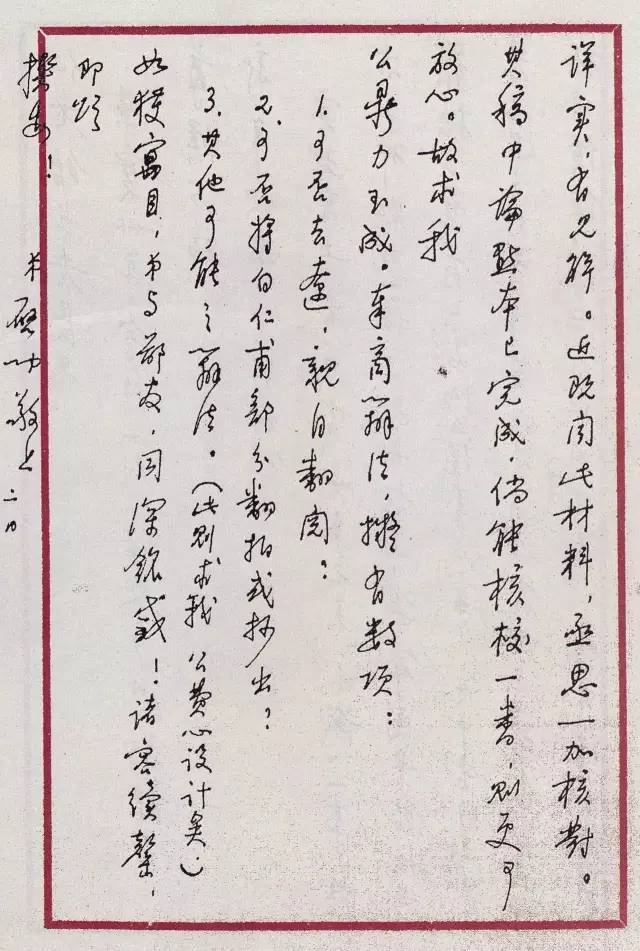 详实，有见解。近既闻此材料，亟思一加核对。
其稿中论点本已完成，倘能核校一番，则更可
放心。故求我
公鼎力玉成。奉商办法，拟有数项：
1.可否去辽，亲自翻阅？
2.可否将白仁甫部分翻拍或抄出？
3.其他可能之办法。（此则求我公费心设计矣。）
如获寓目，弟与邓友，同深铭感！诸容续罄，
即颂
撰安！
弟启功敬上 二日